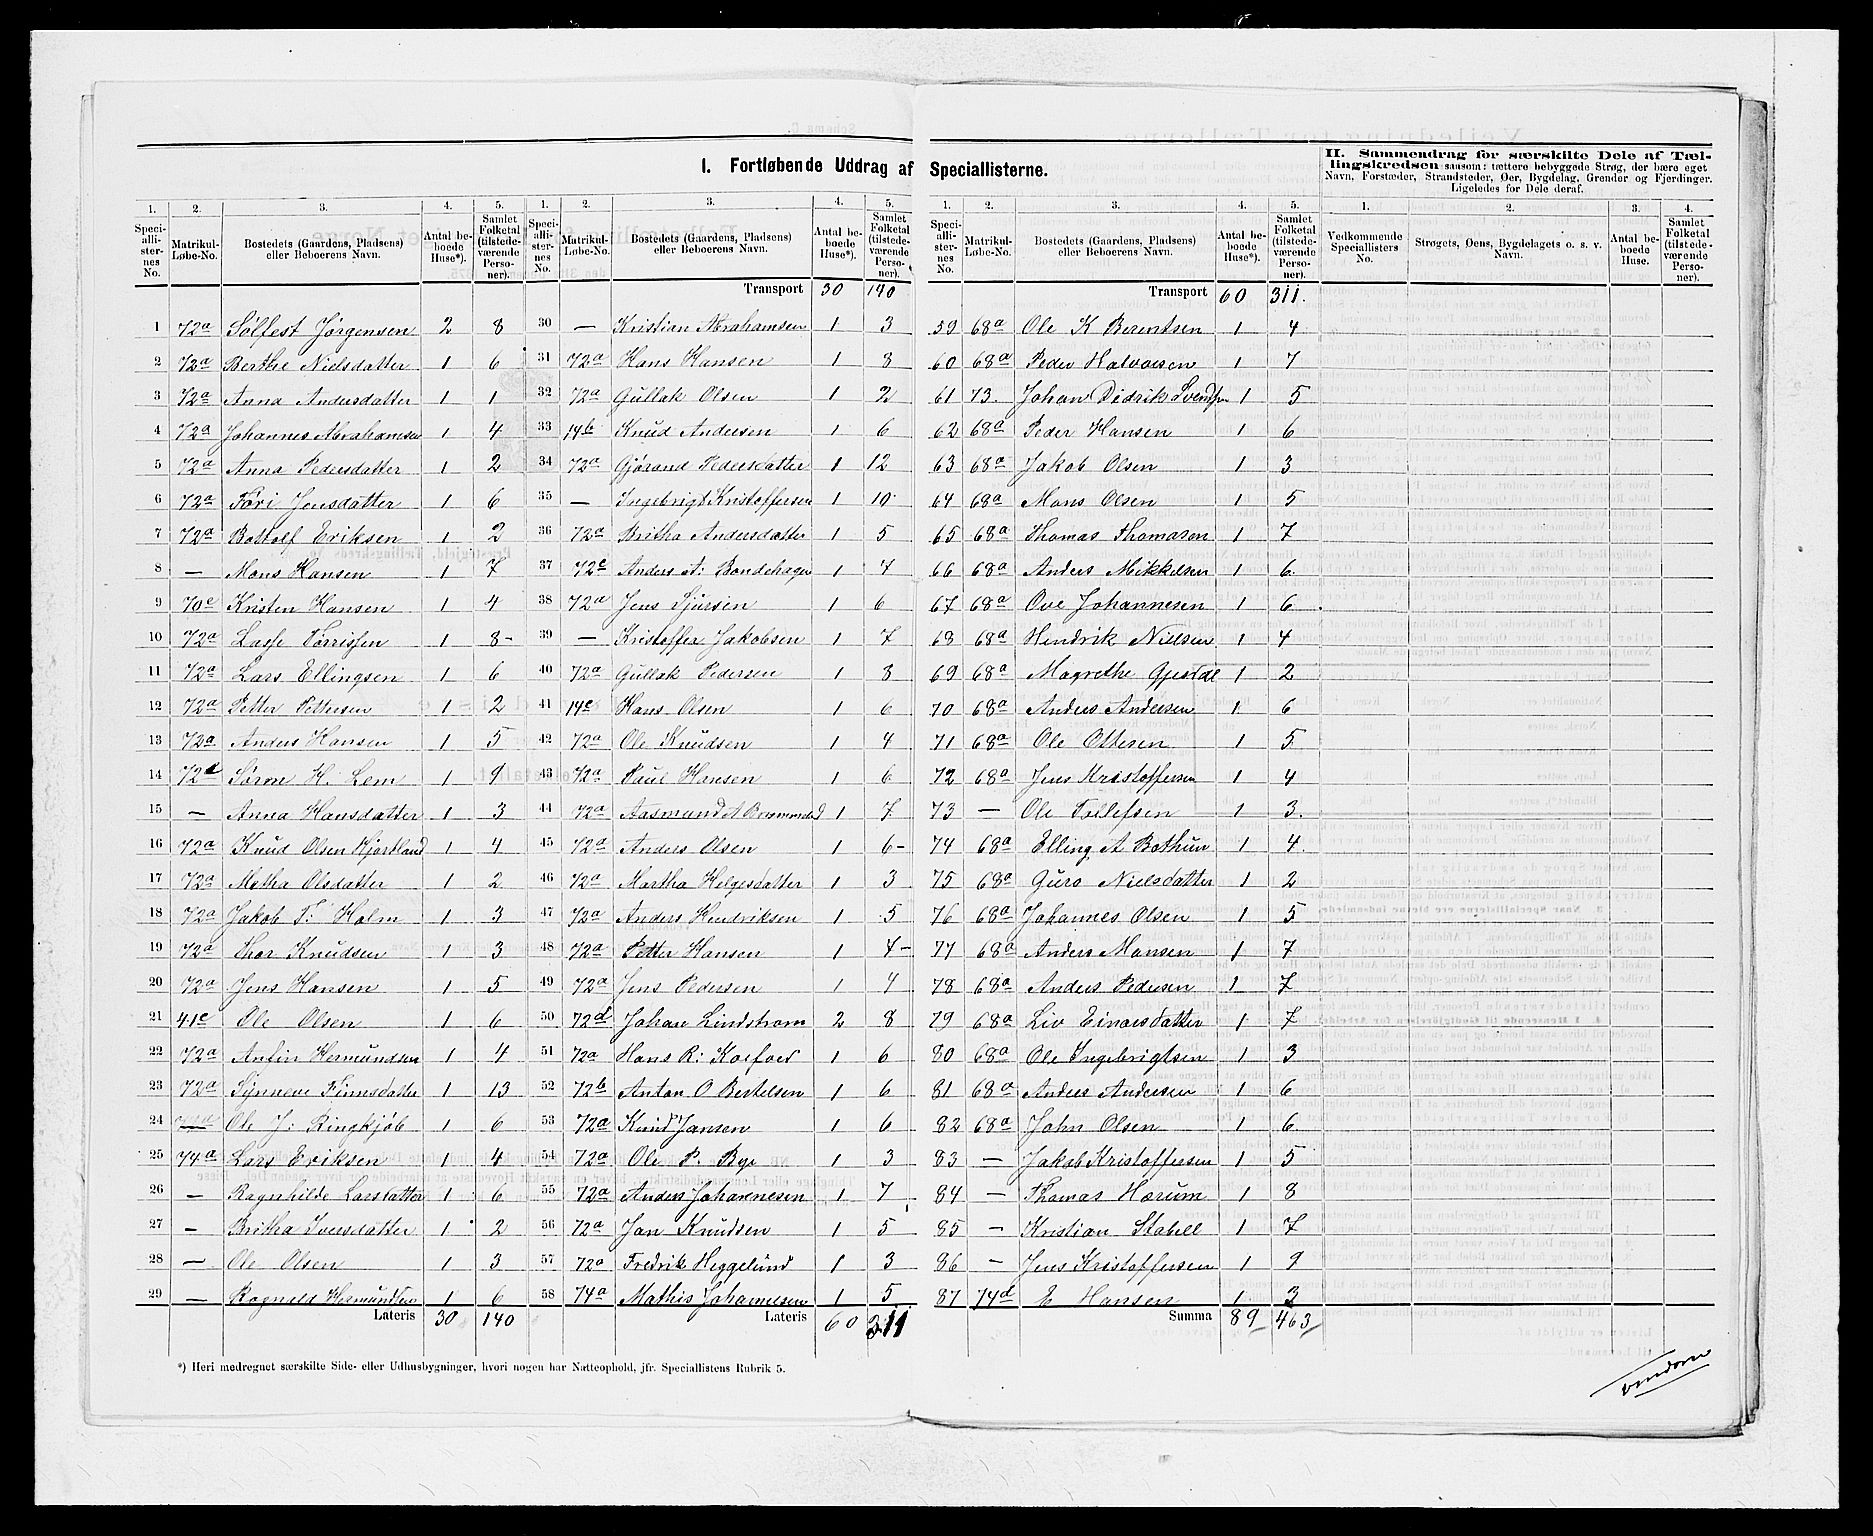 I. Fortløbende Uddrag af Speciallisterne.
II. Sammendrag for særskilte Dele af Tællingskredsen saasom: tættere bebyggede Strøg, der bære eget Navn, Forstæder, Strandsteder, Øer, Bygdelag, Grender og Fjerdinger. Ligeledes for Dele deraf.
1. 2. 3. 4. 5.
Speciallisternes No. Matrikul-Løbe-No. Bostedets (Gaardens, Pladsens) eller Beboerens Navn. Antal beboede Huse*). Samlet Folketal (tilstedeværende Personer).
1 72a Sølfest Jørgensen 2 8
2 72a Berthe Nielsdatter 1 6
3 72a Anna Andersdatter 1 1
4 72a Johannes Abrahamsen 1 4
5 72a Anna Pedersdatter 1 2
6 72a Tøri Jensdatter 1 6
7 72a Bottolf Eriksen 1 2
8 — Mons Hansen 1 7
9 70e Kristen Hansen 1 4
10 72a Lasse Torrissen 1 8-
11 72a Lars Ellingsen 1 6
12 72a Petter Pettersen 1 2
13 72a Anders Hansen 1 5
14 72d Søren H. Lem 1 9
15 — Anna Hansdatter 1 3
16 72a Knud Olsen Hjortland 1 4
17 72a Metha Olsdatter 1 2
18 72a Jakob T: Holm 1 3
19 72a Thor Knudsen 1 3
20 72a Jens Hansen 1 5
21 41e Ole Olsen 1 6
22 72a Anfin Hermundsen 1 4
23 72a Synneve Finnsdatter 1 13
24 Ole J: Ringkjøb 1 6
25 74a Lars Eriksen 1 4
26 — Ragnhilde Larsdatter 1 6
27 — Britha Iversdatter 1 2
28 — Ole Olsen 1 3
29 — Ragnald Hermundsen 1 6
Lateris 30 140
1. 2. 3. 4. 5.
Speciallisternes No. Matrikul-Løbe-No. Bostedets (Gaardens, Pladsens) eller Beboerens Navn. Antal beboede Huse*). Samlet Folketal (tilstedeværende Personer).
Transport 30 140
30 — Kristian Abrahamsen 1 3
31 72a Hans Hansen 1 8
32 72a Gullak Olsen 1 2
33 14b Knud Andersen 1 6
34 72a Gjørand Pedersdatter 1 12
35 — Ingebrigt Kristoffersen 1 10
36 72a Britha Andersdatter 1 5
37 72c Anders A: Bondehagen 1 7
38 72a Jens Sjursen 1 6
39 — Kristoffer Jakobsen 1 7
40 72a Gullak Pedersen 1 8
41 14e Hans Olsen 1 6
42 72a Ole Knudsen 1 4
43 72a Paul Hansen 1 6
44 72a Aasmund A 1 7
45 72a Anders Olsen 1 6-
46 72a Martha Helgesdatter 1 3
47 72a Anders Hendriksen 1 5
48 72a Petter Hansen 1 4-
49 72a Jens Pedersen 1 4
50 72d Johan Lindstrom 2 8
51 72a Hans R: Koefoed 1 6
52 72b Anton O Bertelsen 1 6
53 72a Knud Jansen 1 6
54 72a Ole P. Bge 1 3
55 72a Anders Johannesen 1 7
56 72a Jan Knudsen 1 5
57 72a Fredrik Heggelund 1 3
58 74a Mathis Johannesen 1 5
Lateris 60 311
1. 2. 3. 4. 5.
Speciallisternes No. Matrikul-Løbe-No. Bostedets (Gaardens, Pladsens) eller Beboerens Navn. Antal beboede Huse*). Samlet Folketal (tilstedeværende Personer).
Transport 60 311.
59 68a Ole K Berentsen 1 4
60 68a Peder Halvorsen 1 7
61 73. Johan Didrik Svendsen 1 5
62 68a Peder Hansen 1 6
63 68a Jakob Olsen 1 3
64 68a Mons Olsen 1 5
65 68a Thomas Thomasen 1 7
66 68a Anders Mikkelsen 1 6.
67 68a Ove Johannesen 1 6
68 68a Hendrik Nielsen 1 4
69 68a Magrethe Gjestdl 1 2
70 68a Anders Andersen 1 6
71 68a Ole Ottesen 1 5
72 68a Jens Kristoffersen 1 4
73 — Ole Tollefsen 1 3.
74 68a Elling A Bothun 1 4.
75 68a Guro Nielsdatter 1 2
76 68a Johannes Olsen 1 5
77 68a Anders Monsen 1 7
78 68a Anders Pedersen 1 7
79 68a Liv Einarsdatter 1 7
80 68a Ole Ingebrigtsen 1 3
81 68a Anders Andersen 1 6
82 68a John Olsen 1 6
83 — Jakob Kristoffersen 1 5
84 — Thomas Horum 1 8
85 — Kristian Stabell 1 7
86 — Jens Kristoffersen 1 9
87 74d E Hansen 1 3
Summa 89 463
1. 2. 3. 4.
Vedkommende Speciallisters No. Strøgets, Øens, Bygdelagets o. s. v. Navn. Antal beboede Huse. Samlet Folketal (tilstedeværende Personer).
*) Heri medregnet særskilte Side- eller Udhusbygninger, hvori nogen har Natteophold, jfr. Speciallistens Rubrik 5.